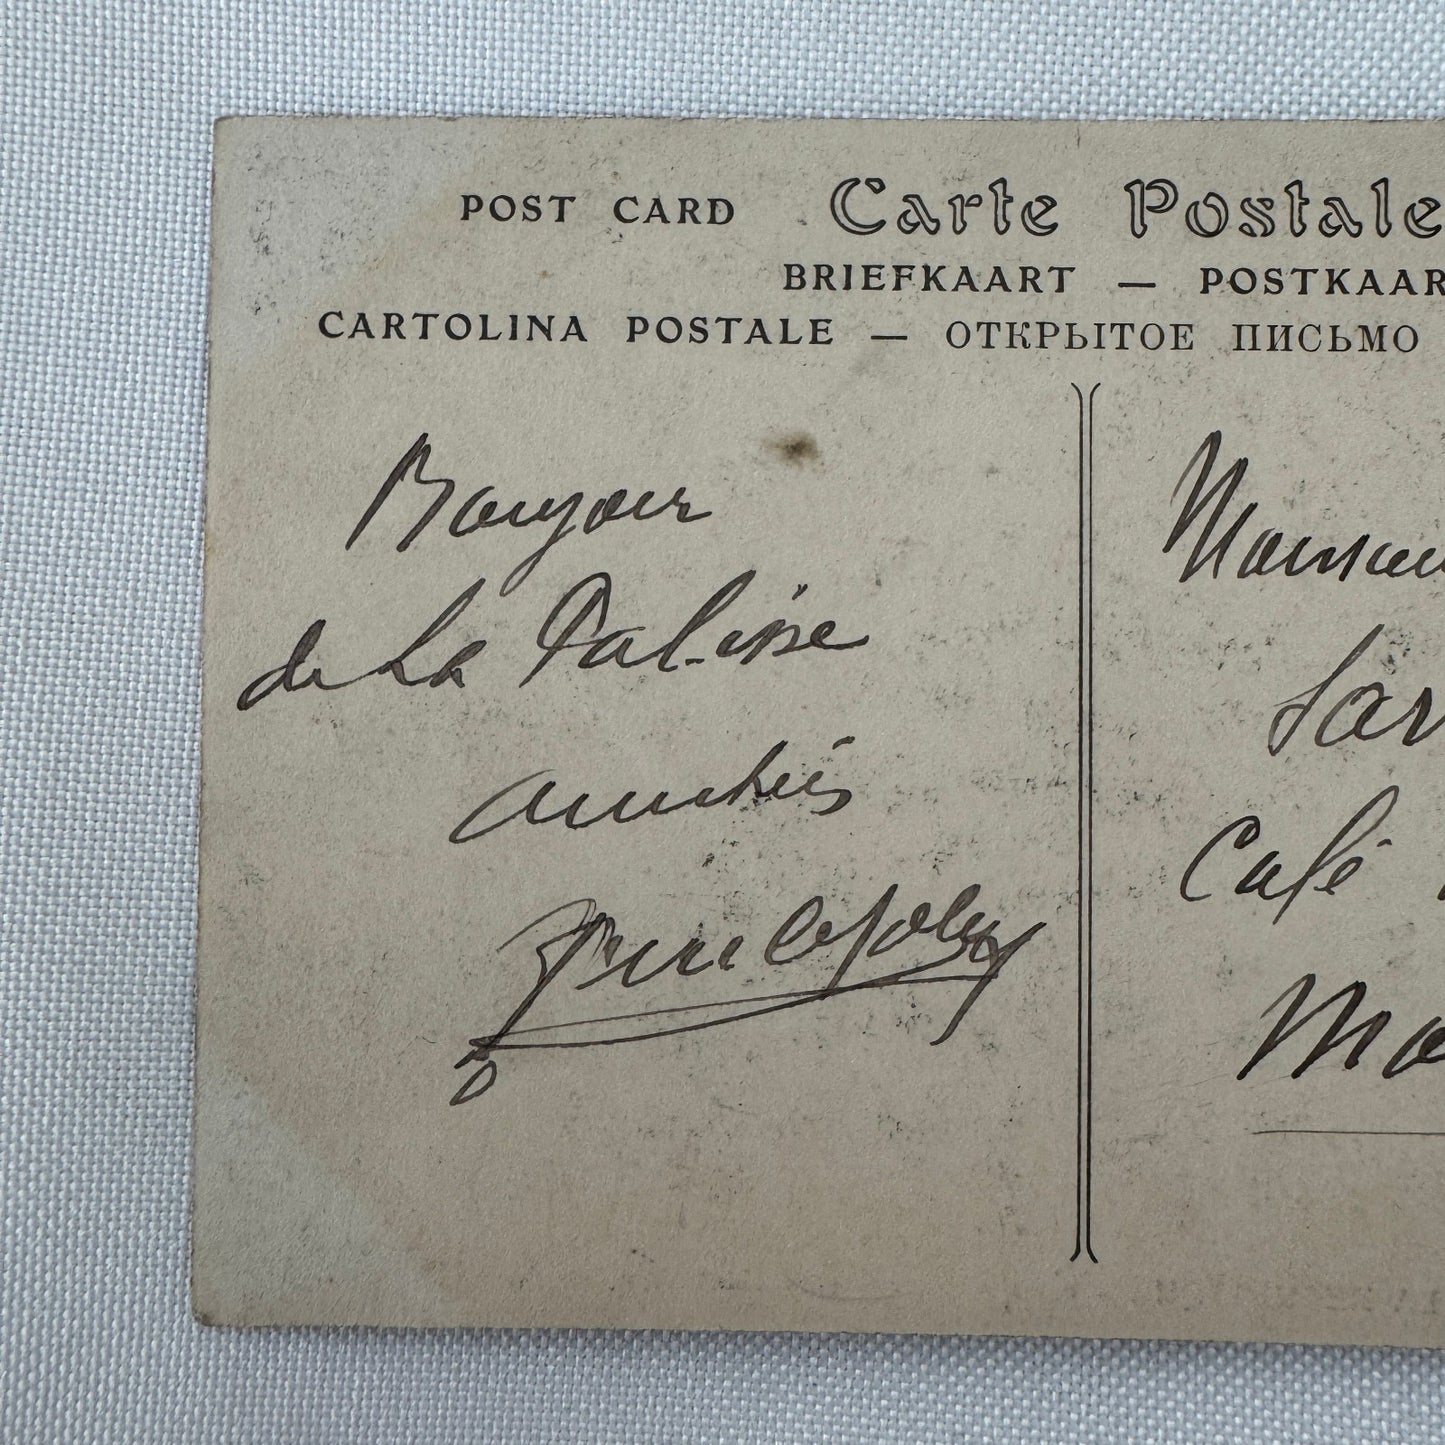 POST CARD Carte Postale
BRIEFKAART — POSTKAAR
CARTOLINA POSTALE — ОТКРЫТОЕ ПИСЬМО
Bonjour
de La Palisse
amitiés
Monsieu
Sar
Café
Mo